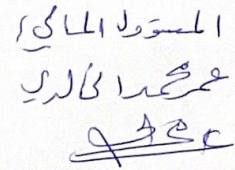 المسؤول المالي،
عمر محمد الخالدي